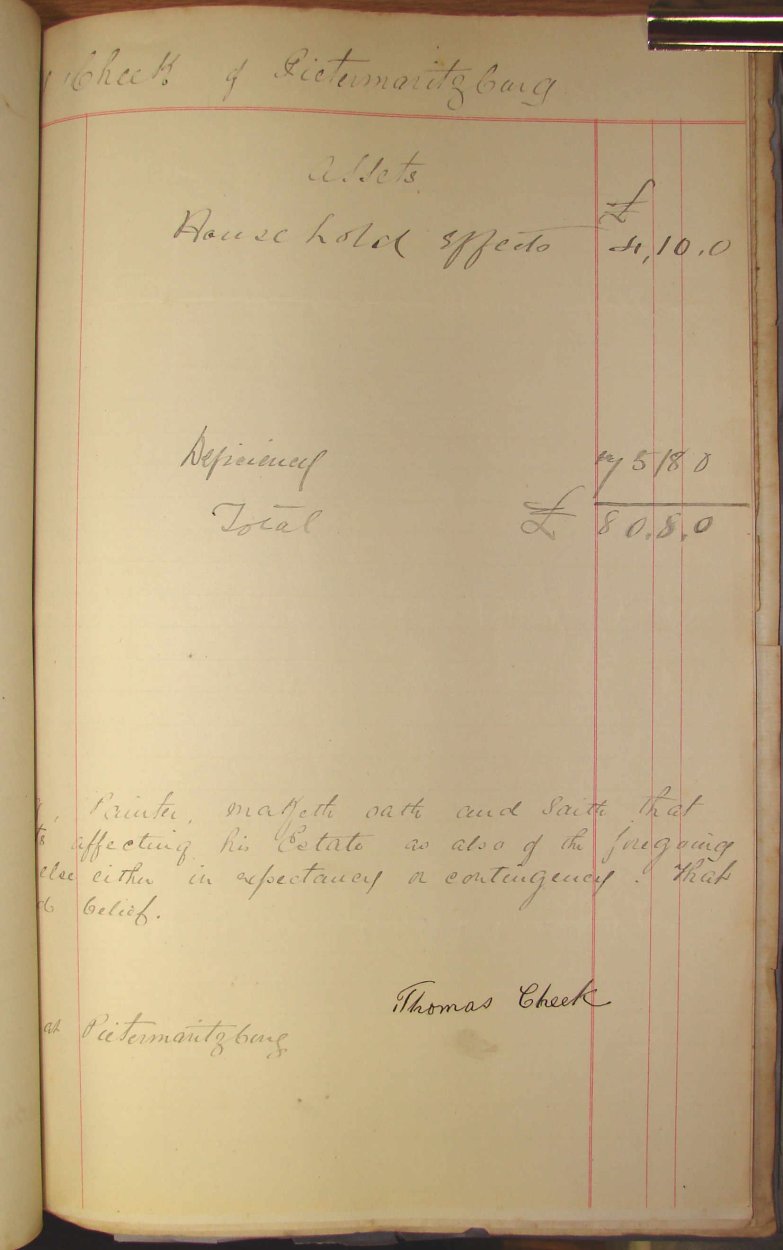 Cheek of Pietermaritzburg
Assets
£
Household Effects 4,10.0
Deficiency 75 18 0
Total £ 80.8.0
Painter, maketh oath and saith that
ts affecting his Estate as also of the foregoing
else either in expectancy or contingency. That
d belief.
Thomas Cheek
at Pietermaritzburg